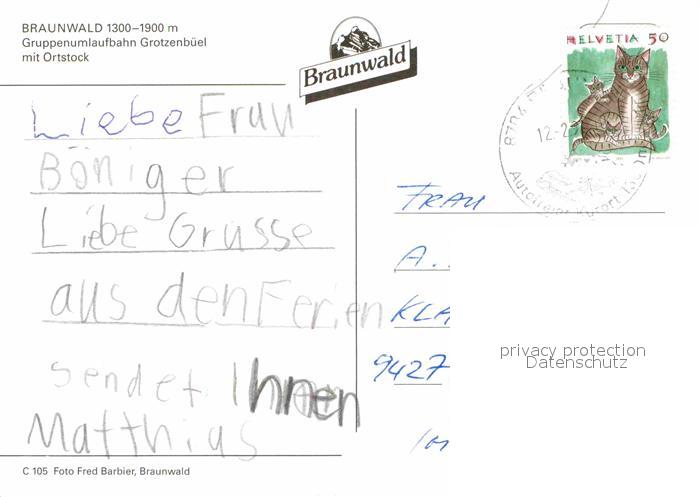 BRAUNWALD 1300–1900 m
Gruppenumlaufbahn Grotzenbüel
mit Ortstock
Braunwald
HELVETIA 50
Autofreier Kurort
Liebe Frau
Böniger
Liebe Grüsse
aus den Ferien
sendet Ihnen
Matthias
FRAU
A.
KLA
9427
privacy protection
Datenschutz
C 105 Foto Fred Barbier, Braunwald